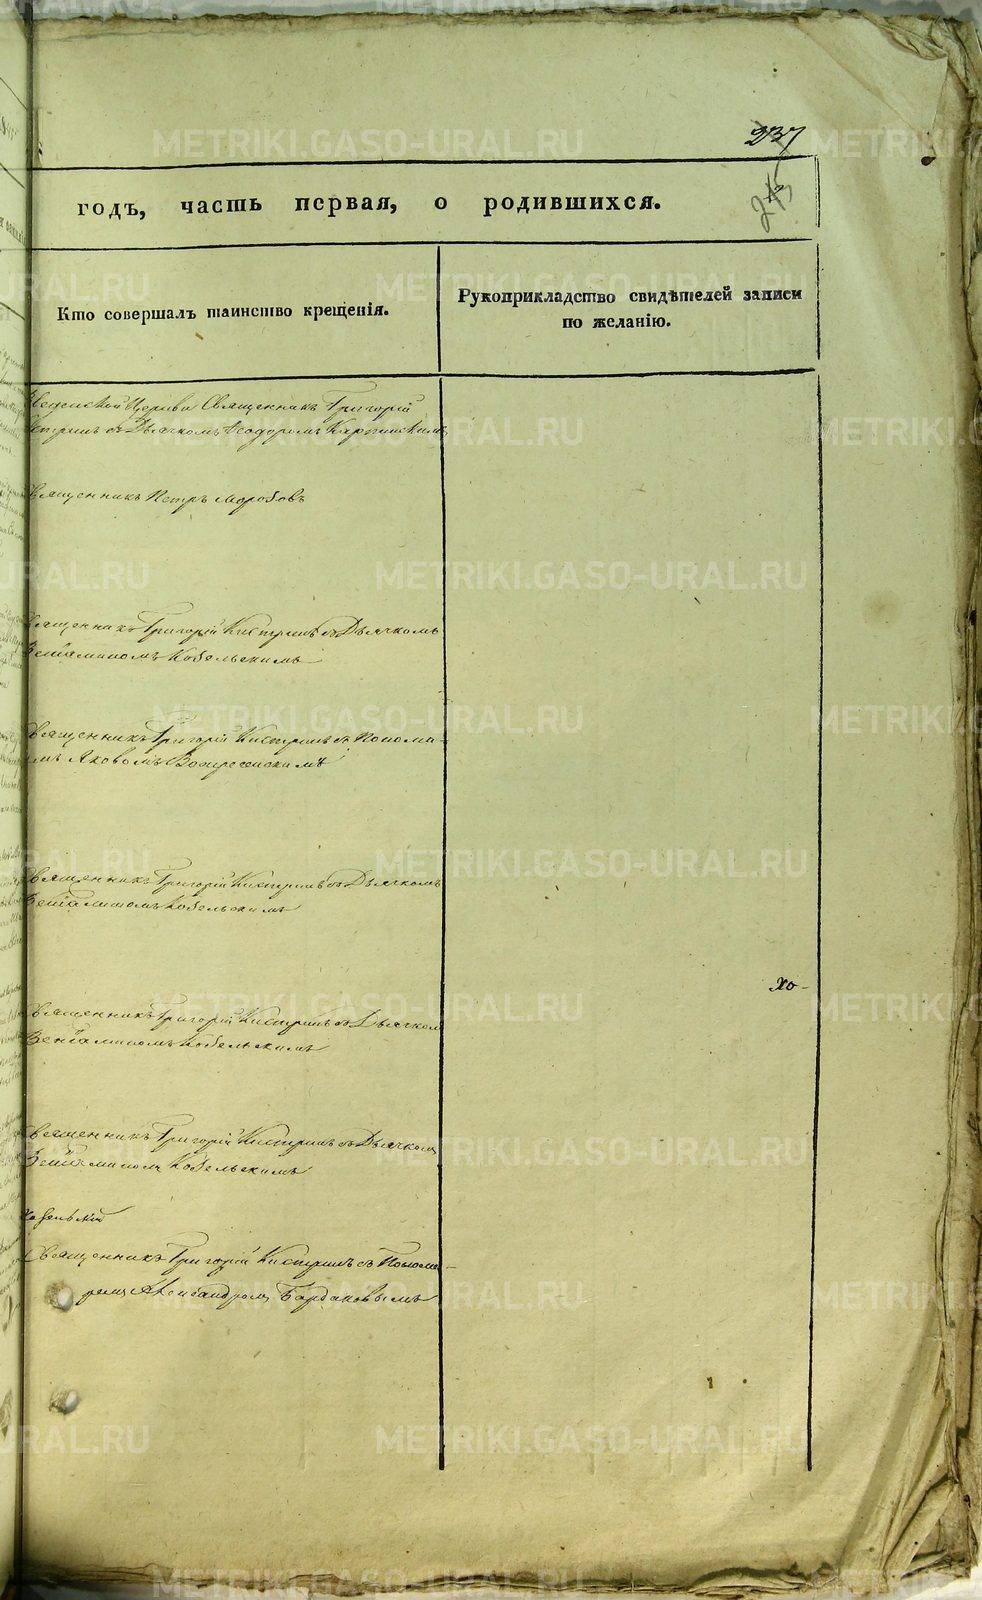 237
275
годъ, часть первая, о родившихся.
Кто совершалъ таинство крещенія.
Рукоприкладство свидѣтелей записи
по желанію.
Церкви Священникъ Григорій
съ Дьячкомъ Ѳеодоромъ
Священникъ Петръ Морозовъ
Священникъ Григорій Кистринъ съ Дьячкомъ
Веніаминомъ Кобельскимъ
Священникъ Григорій Кистринъ съ Понома-
Яковомъ Воскресенскимъ
Священникъ Григорій Кистринъ съ Дьячкомъ
Веніаминомъ Кобельскимъ
хо-
Священникъ Григорій Кистринъ съ Дьячком
Веніаминомъ Кобельскимъ
Священникъ Григорій Кистринъ съ Дьячкомъ
Веніаминомъ Кобельскимъ
Священникъ Григорій Кистринъ съ Понома-
ремъ Александромъ
METRIKI.GASO-URAL.RU